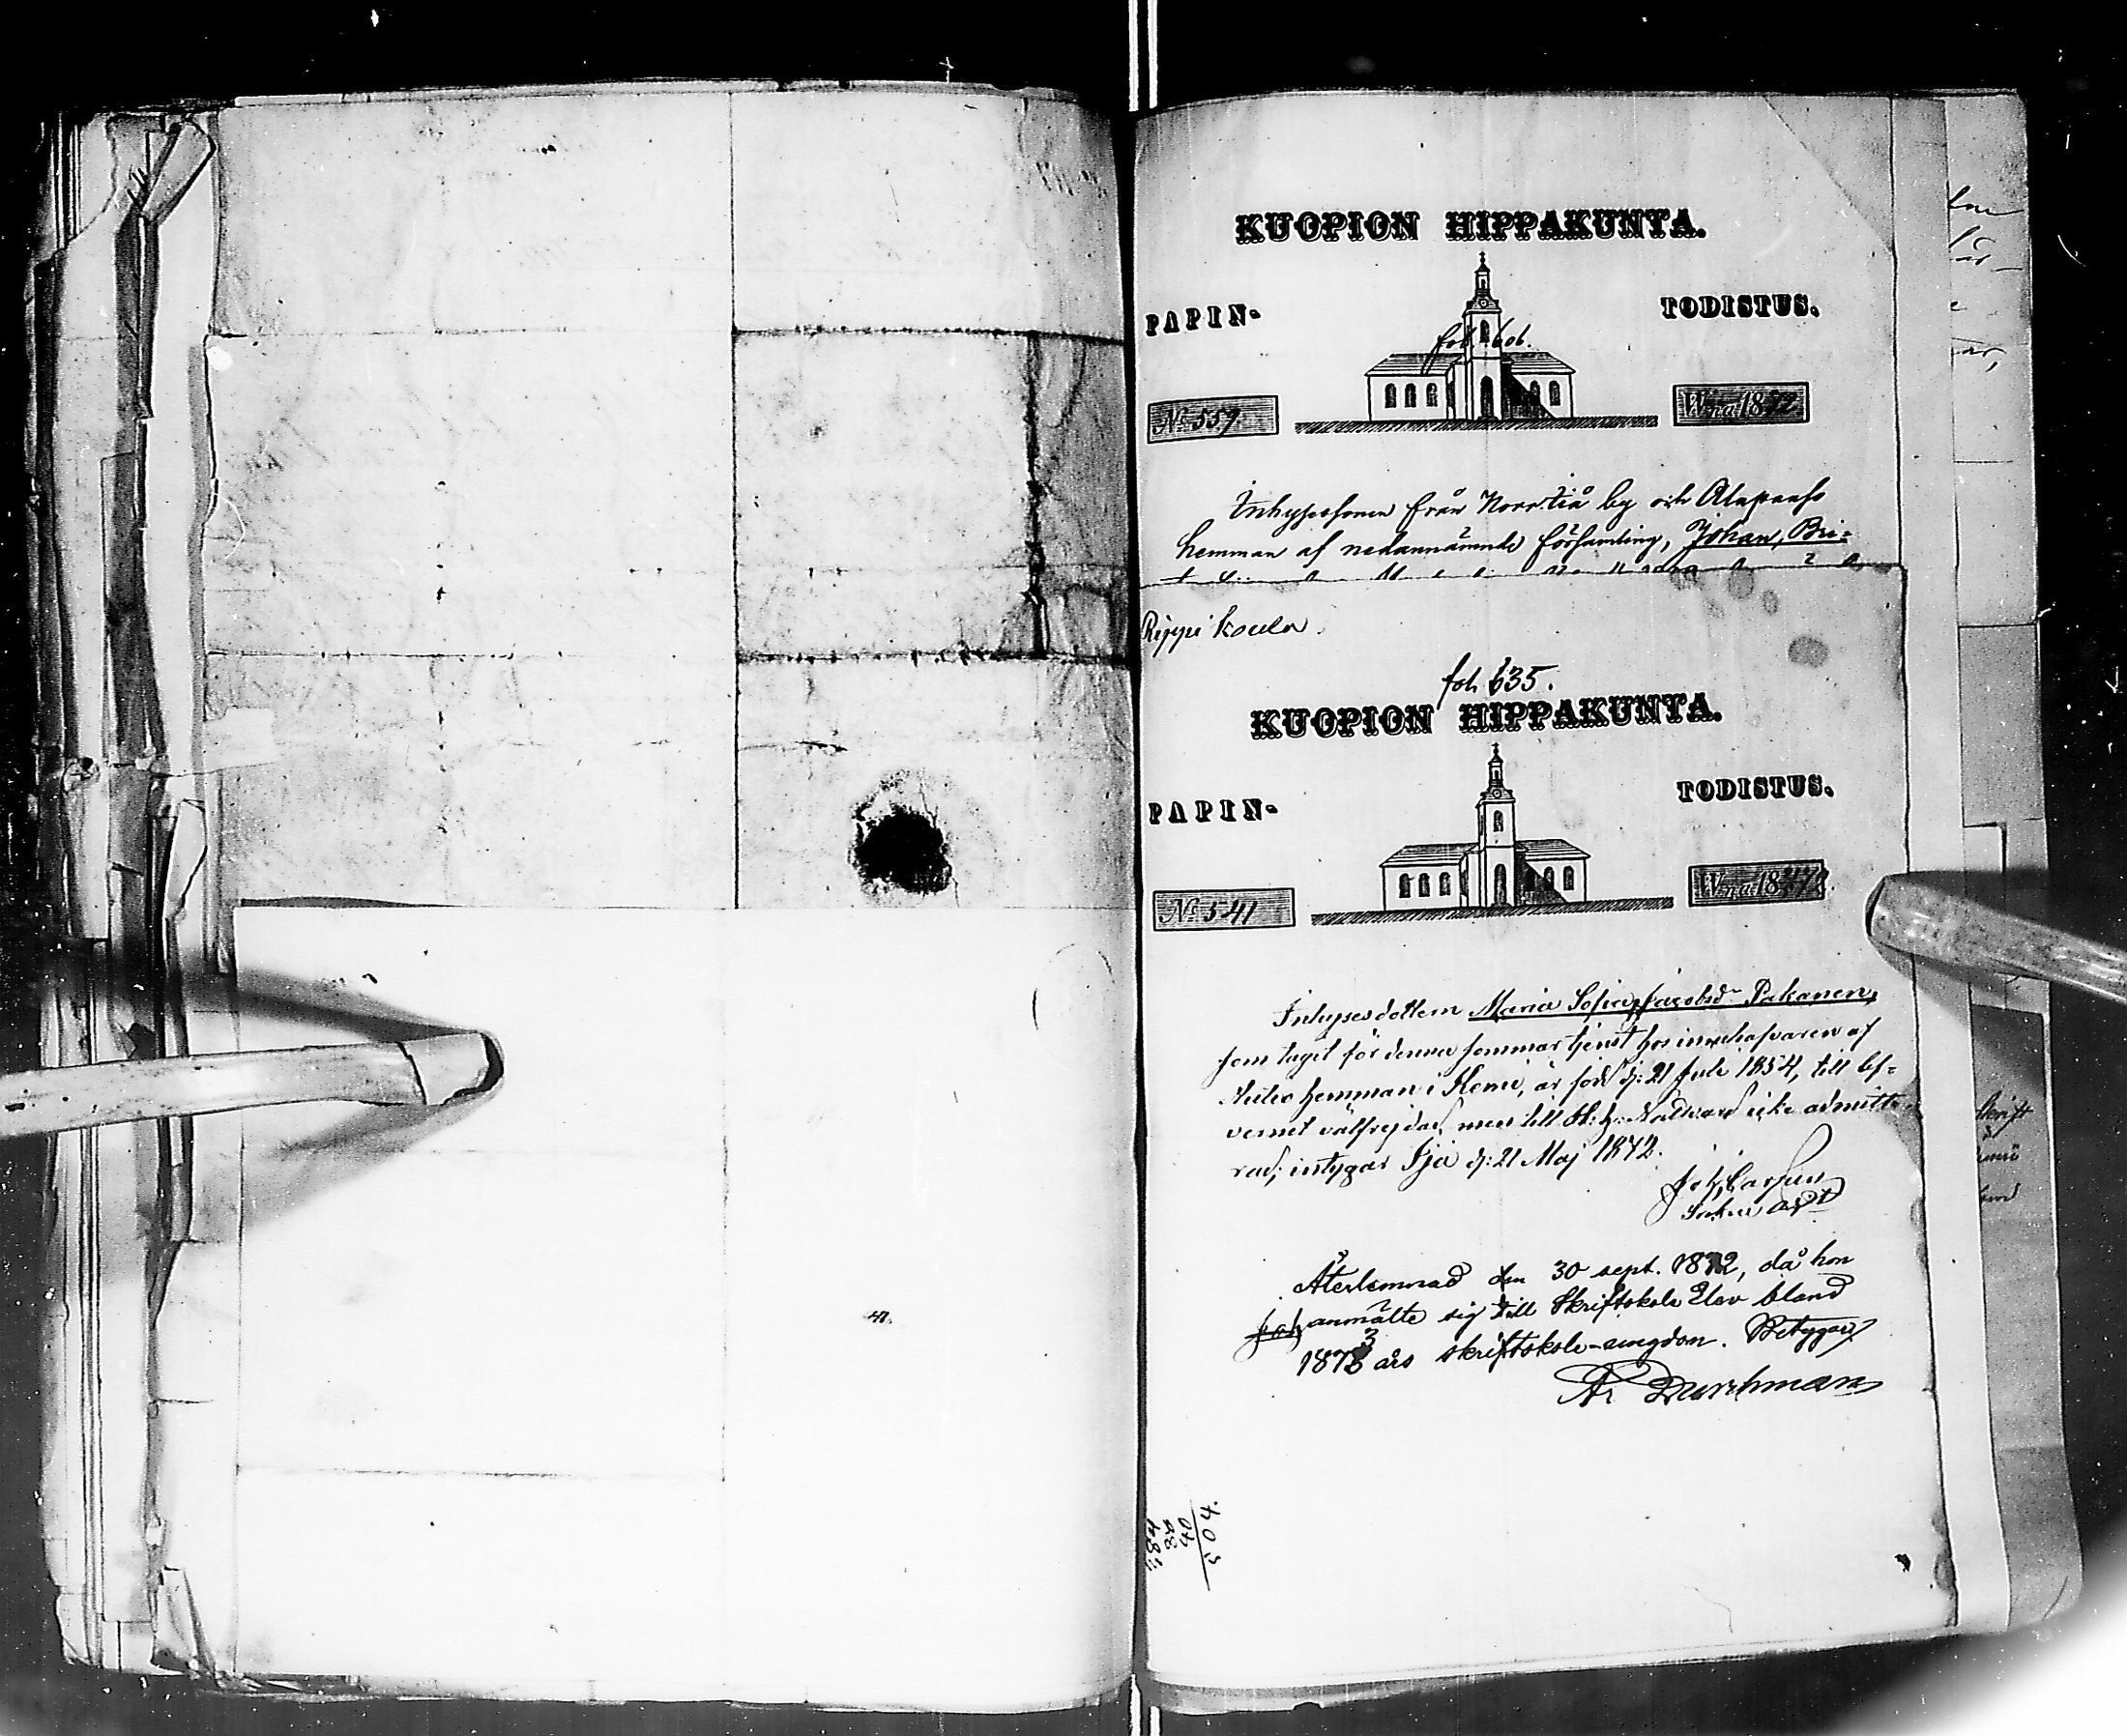 KUOPION HIPPAKUNTA.
PAPIN- TODISTUS.
fol. 606.
No 557. W:na 1872
Inhysessonen från Norrtiå by och Alapaaso
hemman af nedannämnde församling, Johan, Bri-
Rippi koulu.
fol 635.
KUOPION HIPPAKUNTA.
PAPIN- TODISTUS.
No 541 W:na 1872.
Inhysesdottern Maria Sofia Jacobsdr Pakanen,
som tagit för denna sommar tjenst hos innehafvaren af
hemman i Kemi, är född d: 21 Juli 1854, till lef-
vernet välfrejdad, men till H: h: Nattvard icke admitte-
rad; intygar Ijå d: 21 Maj 1872.
Joh, Carlsen
Återlemnad den 30 sept. 1872, då hon
Joh anmälte sig till Skriftskole Elev bland
1873 års skriftskole-ungdom. Betygar
Durchman